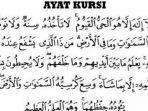 AYAT KURSI
اللَّهُ لَا إِلَهَ إِلَّا هُوَ الْحَيُّ الْقَيُّومُ لَا تَأْخُذُهُ سِنَةٌ وَلَا نَوْمٌ لَهُ مَا فِي
السَّمَوَاتِ وَمَا فِي الْأَرْضِ مَنْ ذَا الَّذِي يَشْفَعُ عِنْدَهُ
إِلَّا بِإِذْنِهِ يَعْلَمُ مَا بَيْنَ أَيْدِيهِمْ وَمَا خَلْفَهُمْ وَلَا يُحِيطُونَ بِشَيْءٍ مِنْ
عِلْمِهِ إِلَّا بِمَا شَاءَ وَسِعَ كُرْسِيُّهُ السَّمَوَاتِ وَالْأَرْضَ
وَلَا يَئُودُهُ حِفْظُهُمَا وَهُوَ الْعَلِيُّ الْعَظِيمُ